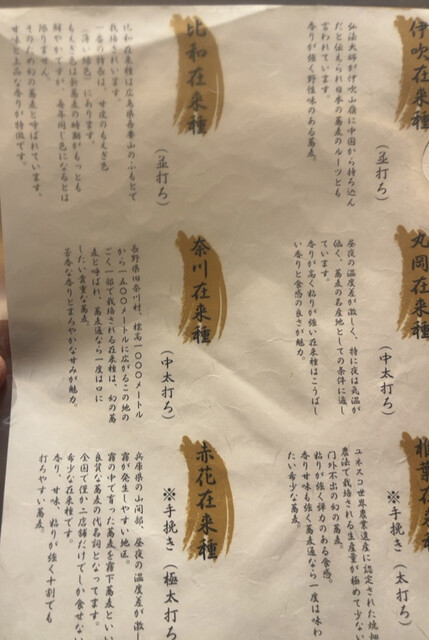 伊吹在来種
(並打ち)
弘法大師が伊吹山麓に中国から持ち込ん
だと伝えられ日本の蕎麦のルーツとも
言われています。
香りが強く野性味のある蕎麦。
比和在来種
(並打ち)
比和在来種は広島県吾妻山のふもとで
栽培されています。
一番の特長は、甘皮のもえぎ色
(薄い緑色)にあります。
もえぎ色は新蕎麦の時期がもっとも
鮮やかですが、毎年同じ色になるとは
限りません。
そのため幻の蕎麦と呼ばれています。
甘味と上品な香りが特徴です。
丸岡在来種
(中太打ち)
昼夜の温度差が激しく、特に夜は気温が
低く、蕎麦の名産地としての条件に適し
ています。
香りが高く粘りが強い在来種はこうばし
い香りと食感の良さが魅力。
奈川在来種
(中太打ち)
長野県旧奈川村、標高一〇〇〇メートル
から一五〇〇メートルに広がるこの地の
ごく一部で栽培される在来種は、幻の蕎
麦と呼ばれ、蕎麦通なら一度は口に
したい貴重な蕎麦。
芳香な香りとまろやかな甘みが魅力。
椎葉在来種
※手挽き(太打ち)
ユネスコ世界農業遺産に認定された焼畑
農法で栽培される生産量が極めて少ない
門外不出の幻の蕎麦。
粘りが強く弾力のある食感。
香り甘味も強く蕎麦通なら一度は味わ
たい希少な蕎麦。
赤花在来種
※手挽き(極太打ち)
兵庫県の山間部、昼夜の温度差が激し
霧が発生しやすい地区。
霧の中で育った蕎麦を霧下蕎麦といい
良質な蕎麦の代名詞となってます。
全国で僅か二店舗だけでしか食せない
希少な在来種です。
香り、甘味、粘りが強く十割でも
打ちやすい蕎麦。